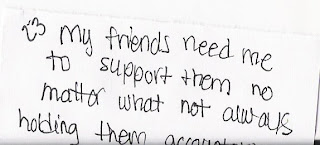 my friends need me
to support them no
matter what not always
holding them